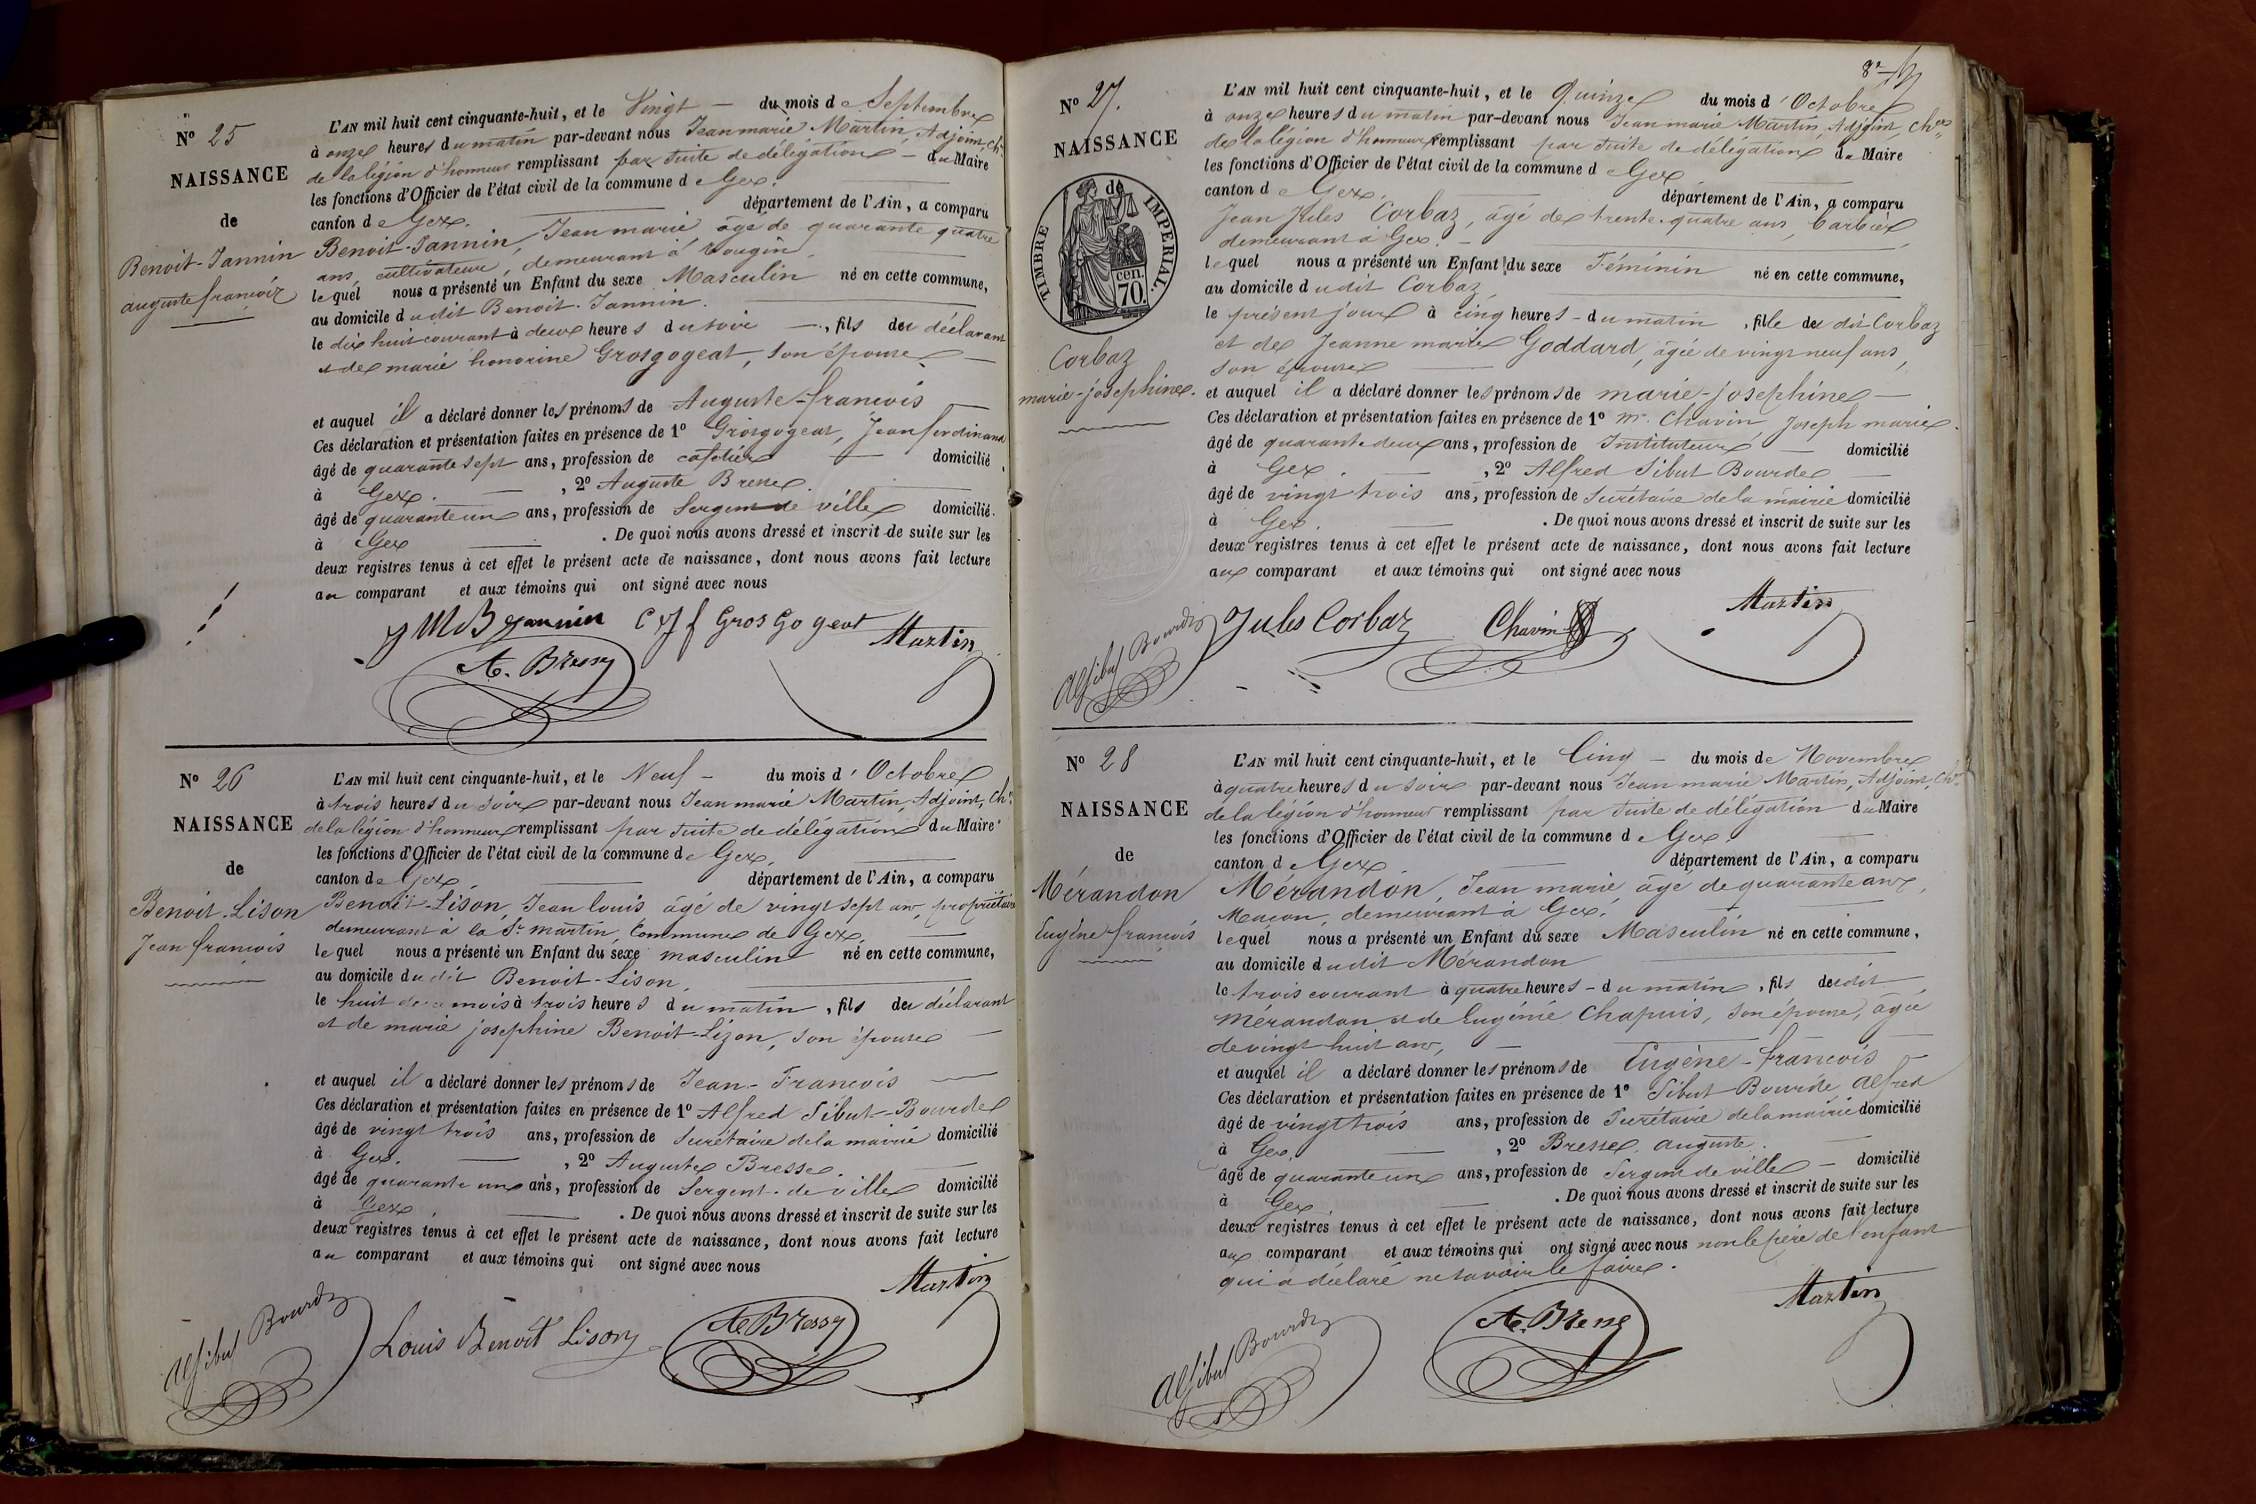 N° 25
NAISSANCE
de
Benoit-Jannin
auguste françois
L'AN mil huit cent cinquante-huit, et le Vingt — du mois de Septembre
à onze heures du matin par-devant nous Jean marie Martin, Adjoint, Chr
de la légion d'honneur remplissant par suite de délégation — du Maire
les fonctions d'Officier de l'état civil de la commune de Gex.
canton de Gex. département de l'Ain, a comparu
Benoit-Jannin, Jean marie âgé de quarante quatre
ans, cultivateur, demeurant à Tougin
lequel nous a présenté un Enfant du sexe Masculin né en cette commune,
au domicile dudit Benoit-Jannin.
le dix huit courant à deux heures du soir —, fils du déclarant
et de marie honorine Grosgogeat, son épouse
et auquel il a déclaré donner les prénoms de Auguste-françois
Ces déclaration et présentation faites en présence de 1° Grosgogeat, Jean ferdinand
âgé de quarante sept ans, profession de cafetier — domicilié
à Gex. —, 2° Auguste Bresse.
âgé de quarante un ans, profession de Sergent de ville domicilié
à Gex — . De quoi nous avons dressé et inscrit de suite sur les
deux registres tenus à cet effet le présent acte de naissance, dont nous avons fait lecture
au comparant et aux témoins qui ont signé avec nous
J M B Jannin Grosgogeat Martin
A. Bressy
N° 26
NAISSANCE
de
Benoit-Lison
Jean françois
L'AN mil huit cent cinquante-huit, et le Neuf — du mois d'Octobre
à trois heures du soir par-devant nous Jean marie Martin, Adjoint, Chr
de la légion d'honneur remplissant par suite de délégation du Maire
les fonctions d'Officier de l'état civil de la commune de Gex.
canton de Gex département de l'Ain, a comparu
Benoit-Lison, Jean louis âgé de vingt sept ans, propriétaire
demeurant à la St martin, Commune de Gex
lequel nous a présenté un Enfant du sexe masculin né en cette commune,
au domicile dudit Benoit-Lison.
le huit de ce mois à trois heures du matin, fils du déclarant
et de marie josephine Benoit-Lizon, son épouse —
et auquel il a déclaré donner les prénoms de Jean-François —
Ces déclaration et présentation faites en présence de 1° Alfred Sibut-Bourde
âgé de vingt trois ans, profession de Secrétaire de la mairie domicilié
à Gex. —, 2° Auguste Bresse.
âgé de quarante un ans, profession de Sergent-de ville domicilié
à Gex — . De quoi nous avons dressé et inscrit de suite sur les
deux registres tenus à cet effet le présent acte de naissance, dont nous avons fait lecture
au comparant et aux témoins qui ont signé avec nous
Martin
Alf Sibut Bourde Louis Benoit Lison A. Bressy
N° 27.
NAISSANCE
de
TIMBRE IMPERIAL.
70. cen.
Corbaz
marie-josephine.
L'AN mil huit cent cinquante-huit, et le Quinze du mois d'Octobre
à onze heures du matin par-devant nous Jean marie Martin, Adjoint, Cher
de la légion d'honneur remplissant par suite de délégation du Maire
les fonctions d'Officier de l'état civil de la commune de Gex
canton de Gex. département de l'Ain, a comparu
Jean Jules Corbaz, âgé de trente-quatre ans, barbier,
demeurant à Gex. —
lequel nous a présenté un Enfant du sexe Féminin né en cette commune,
au domicile dudit Corbaz,
le présent jour à cinq heures - du matin, fille du dit Corbaz
et de Jeanne marie Goddard, âgée de vingt neuf ans,
son épouse
et auquel il a déclaré donner les prénoms de marie-josephine —
Ces déclaration et présentation faites en présence de 1° mr. Chavin Joseph marie.
âgé de quarante deux ans, profession de Instituteur — domicilié
à Gex. —, 2° Alfred Sibut Bourde
âgé de vingt trois ans, profession de Secrétaire de la mairie domicilié
à Gex. — . De quoi nous avons dressé et inscrit de suite sur les
deux registres tenus à cet effet le présent acte de naissance, dont nous avons fait lecture
aux comparant et aux témoins qui ont signé avec nous
Alf Sibut Bourde Jules Corbaz Chavin Martin
N° 28
NAISSANCE
de
Mérandon
Eugène françois
L'AN mil huit cent cinquante-huit, et le Cinq — du mois de Novembre
à quatre heures du soir par-devant nous Jean marie Martin, Adjoint, Chr
de la légion d'honneur remplissant par suite de délégation du Maire
les fonctions d'Officier de l'état civil de la commune de Gex.
canton de Gex département de l'Ain, a comparu
Mérandon, Jean marie âgé de quarante ans,
Maçon, demeurant à Gex.
lequel nous a présenté un Enfant du sexe Masculin né en cette commune,
au domicile dudit Mérandon
le trois courant à quatre heures - du matin, fils dudit
Mérandon et de Eugénie Chapuis, son épouse, âgée
de vingt huit ans, —
et auquel il a déclaré donner les prénoms de Eugène-françois —
Ces déclaration et présentation faites en présence de 1° Sibut-Bourde, alfred
âgé de vingt trois ans, profession de Secrétaire de la mairie domicilié
à Gex. —, 2° Bresse, auguste.
âgé de quarante un ans, profession de Sergent de ville — domicilié
à Gex — . De quoi nous avons dressé et inscrit de suite sur les
deux registres tenus à cet effet le présent acte de naissance, dont nous avons fait lecture
aux comparant et aux témoins qui ont signé avec nous non le père de l'enfant
qui a déclaré ne savoir le faire.
Alf Sibut Bourde A. Bresse Martin